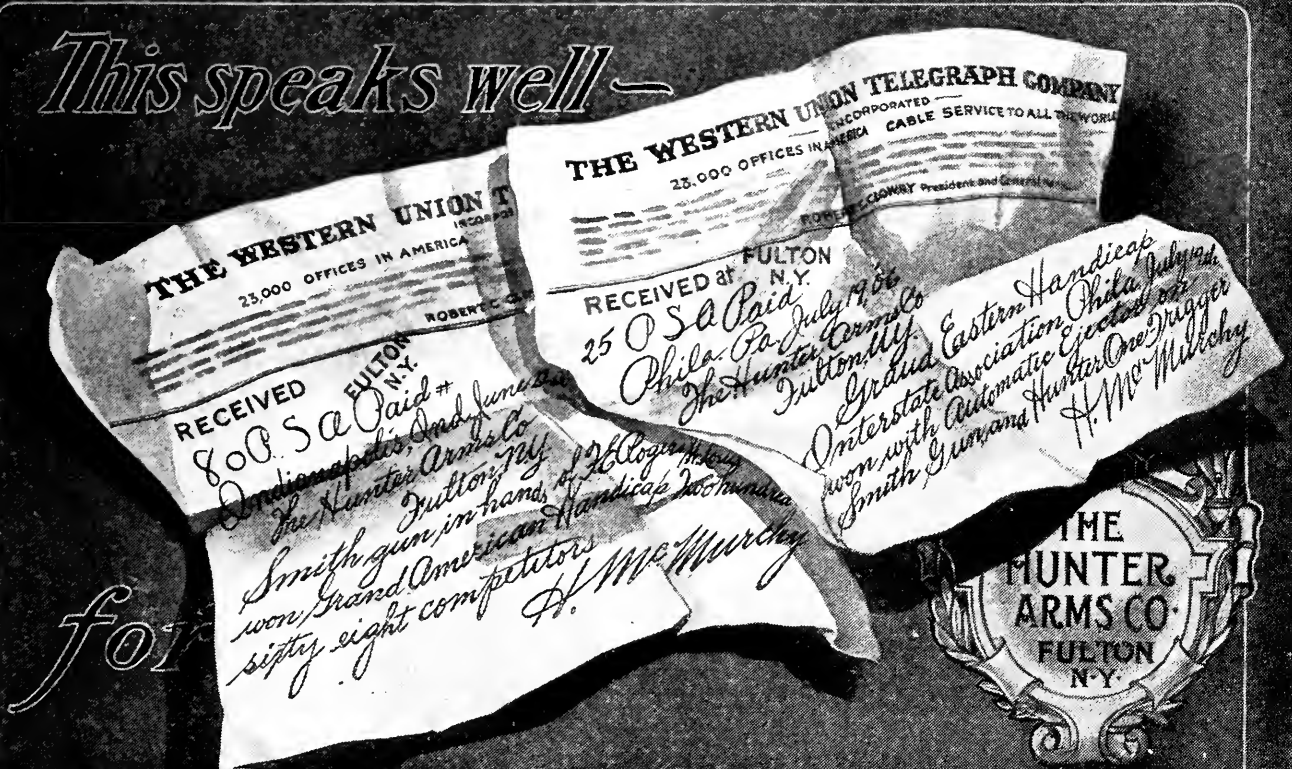 This speaks well—
THE WESTERN UNION T
INCORPO
23,000 OFFICES IN AMERICA
ROBERT C. CL
RECEIVED
FULTON
N.Y.
80 P. S a Paid
Indianapolis, Ind June
The Hunter Arms Co
Fulton, NY
Smith gun in hands of F E Rogers
won Grand American Handicap Two hundred
sixty eight competitors
H. McMurchy
THE WESTERN UNION TELEGRAPH COMPANY
INCORPORATED
23,000 OFFICES IN AMERICA CABLE SERVICE TO ALL THE WORLD
ROBERT C. CLOWRY President and General
RECEIVED at FULTON
N.Y.
25 P S a Paid
Phila. Pa July 19, 06
The Hunter Arms Co
Fulton, N.Y.
Grand Eastern Handicap
Interstate Association Phila July 19th
won with Automatic Ejector on
Smith Gun, and Hunter One Trigger
H. McMurchy
for
THE
HUNTER
ARMS CO.
FULTON
N.Y.